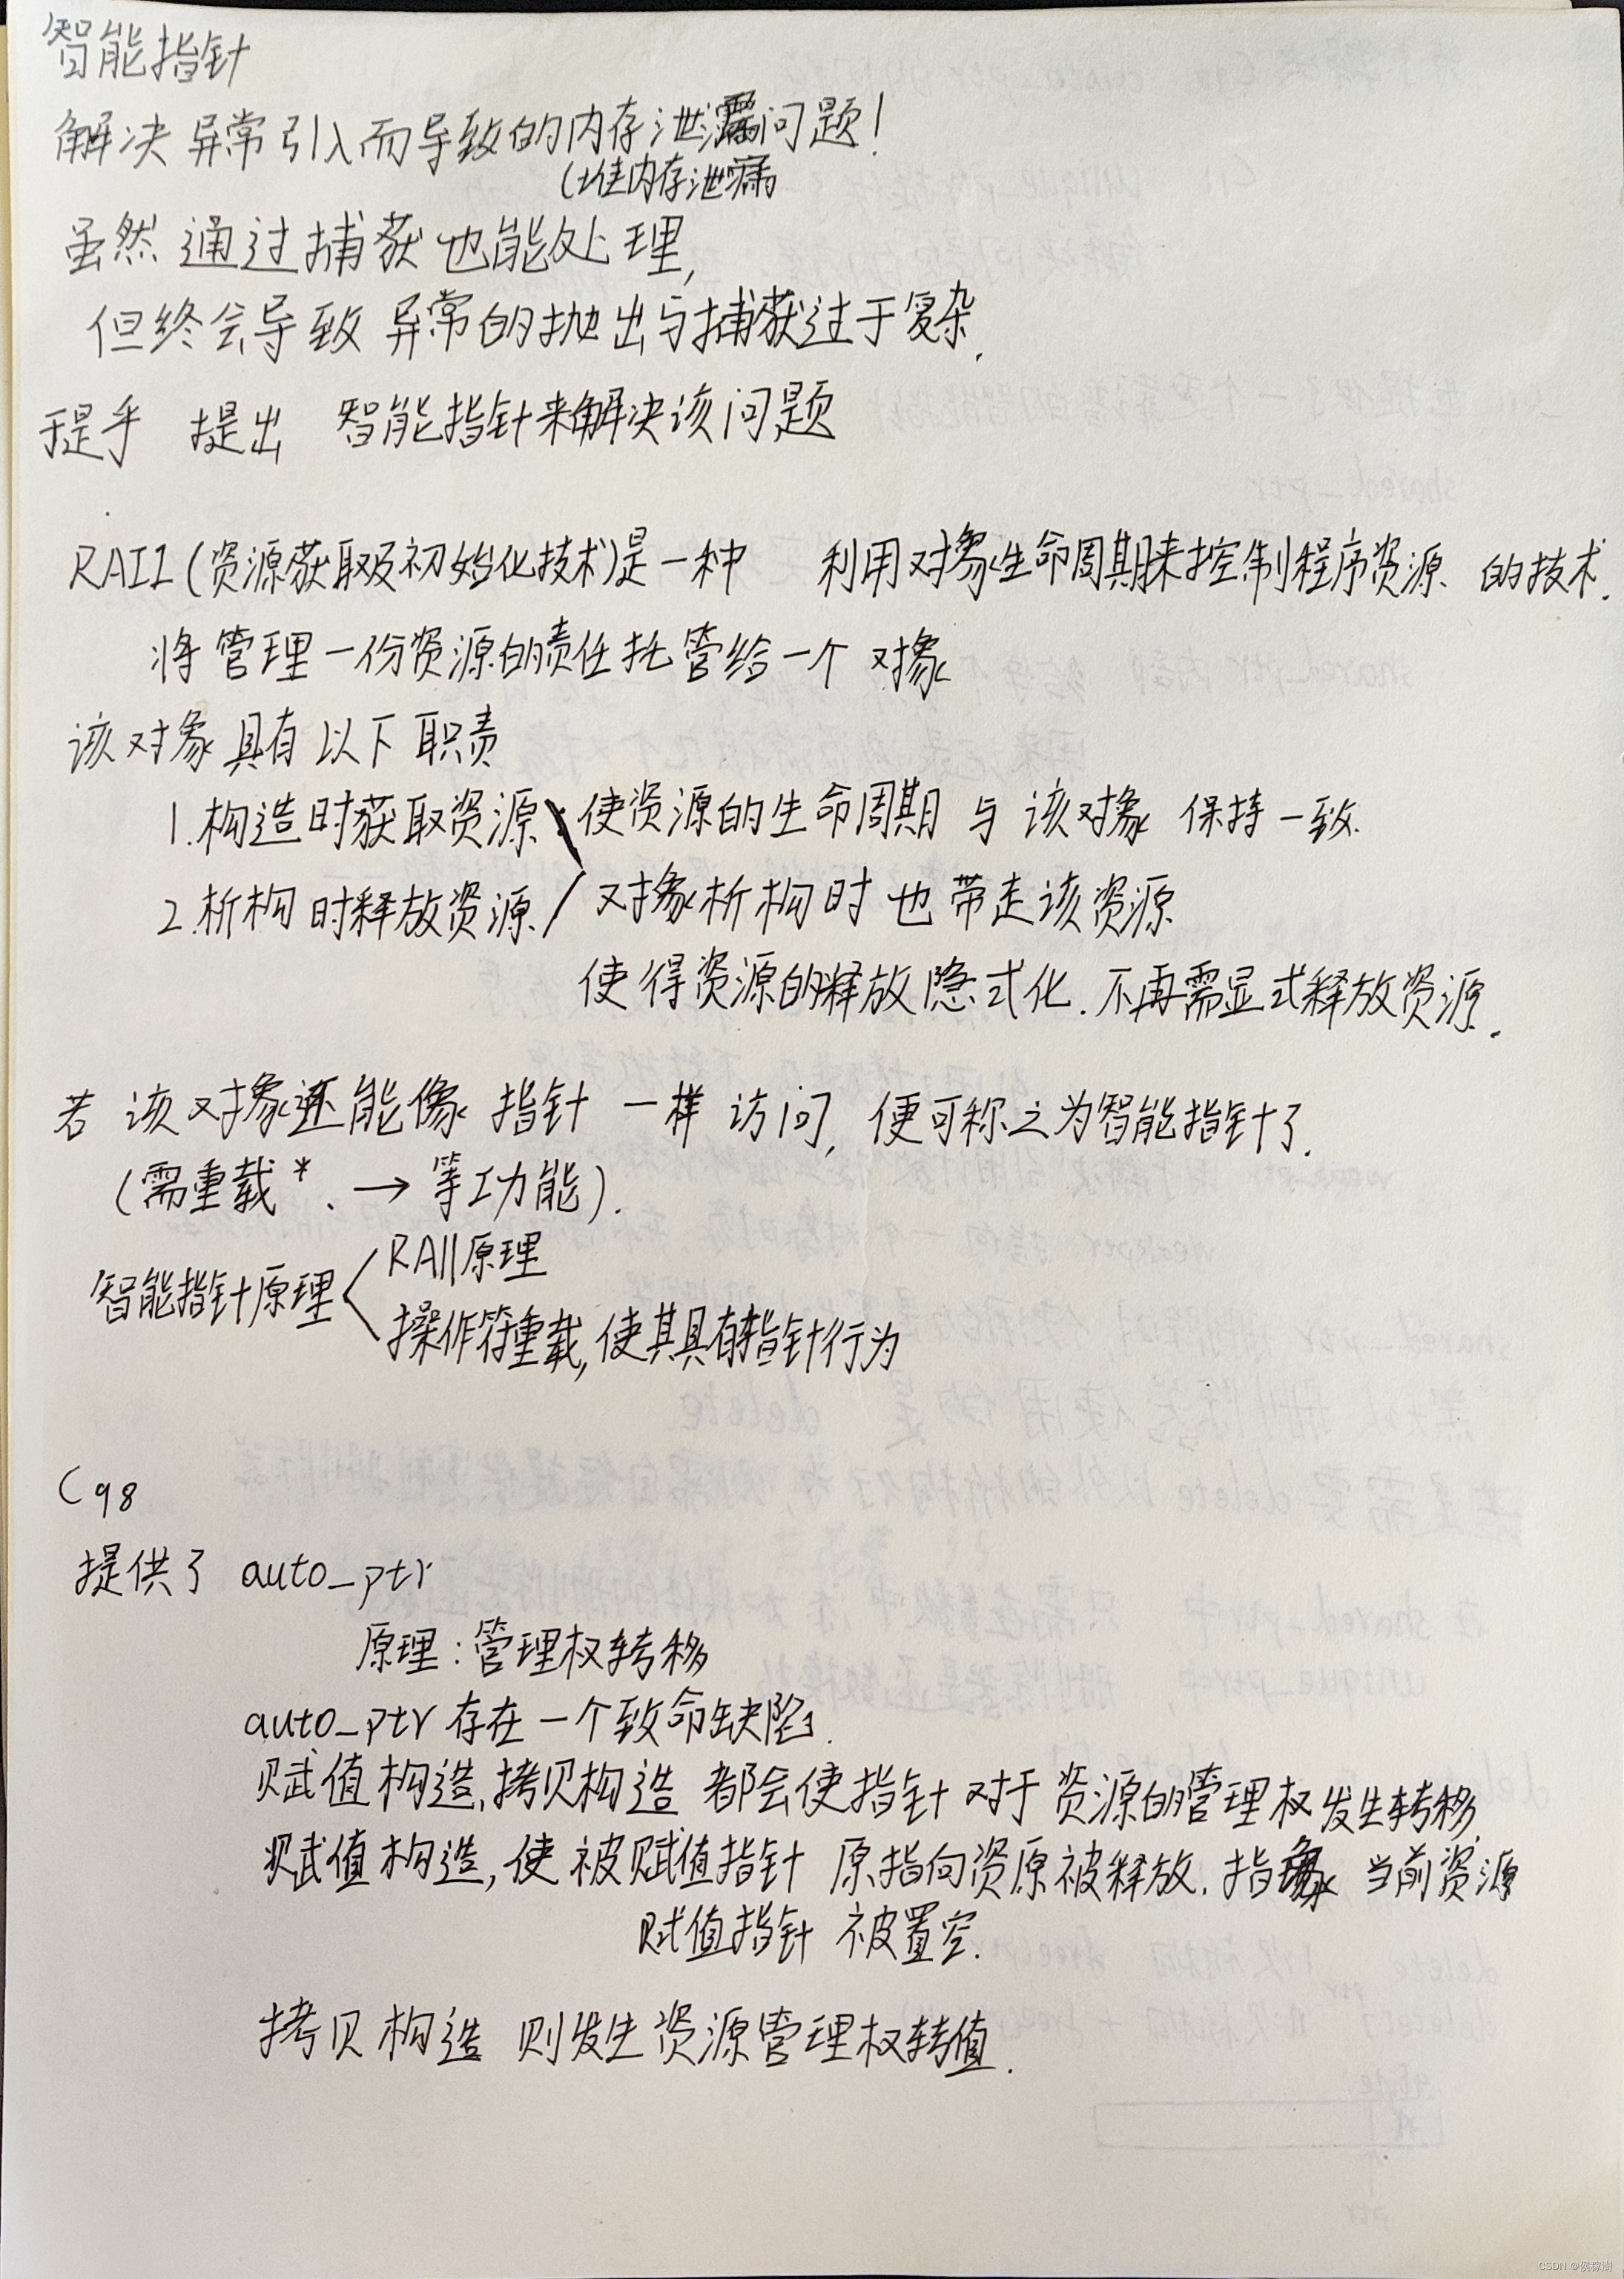 智能指针
解决异常引入而导致的内存泄漏问题!
(堆内存泄漏
虽然通过捕获也能处理,
但终会导致异常的抛出与捕获过于复杂.
于是乎 提出 智能指针来解决该问题
RAII(资源获取及初始化技术)是一种 利用对象生命周期来控制程序资源 的技术.
将管理一份资源的责任托管给一个对象
该对象具有以下职责
1.构造时获取资源 使资源的生命周期 与 该对象 保持一致.
2.析构时释放资源. 对象析构时也带走该资源
使得资源的释放隐式化.不再需显式释放资源.
若该对象还能像指针一样访问,便可称之为智能指针了.
(需重载*、→等功能).
智能指针原理
RAII原理
操作符重载,使其具有指针行为
C98
提供了 auto_ptr
原理:管理权转移
auto_ptr存在一个致命缺陷.
赋值构造,拷贝构造 都会使指针对于资源的管理权发生转移.
赋值构造,使被赋值指针 原指向资原被释放.指 当前资源
赋值指针 被置空.
拷贝构造 则发生资源管理权转值.
CSDN @侯稼澍